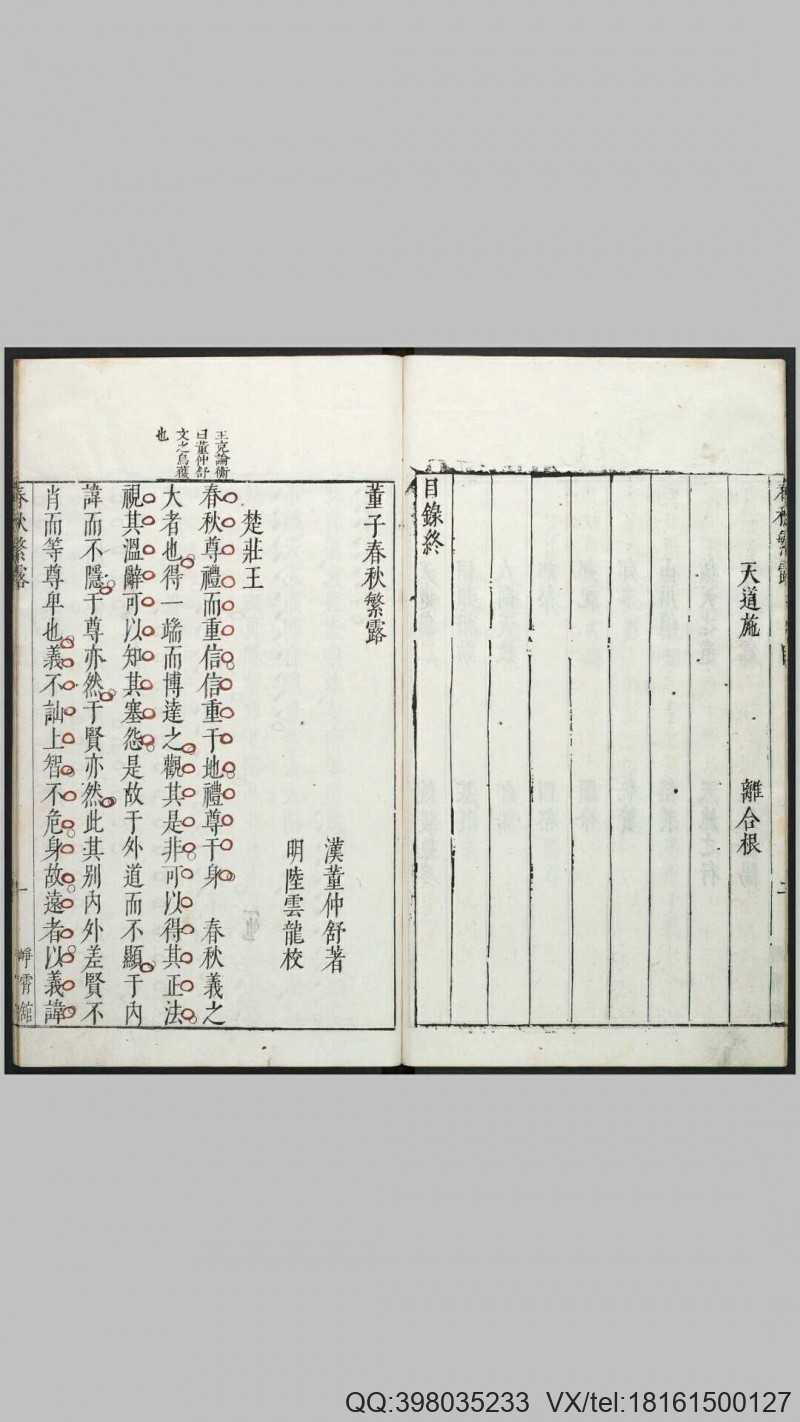 春秋繁露
天道施　離合根
二
目錄終
王充論衡
曰董仲舒
文之烏獲
也
董子春秋繁露
漢董仲舒著
明陸雲龍校
楚莊王
春秋尊禮而重信信重于地禮尊于身　春秋義之
大者也得一端而博達之觀其是非可以得其正法
視其溫辭可以知其塞怨是故于外道而不顯于內
諱而不隱于尊亦然于賢亦然此其別內外差賢不
肖而等尊卑也義不訕上智不危身故遠者以義諱
春秋繁露
一
崢霄館
QQ:398035233 VX/tel:18161500127